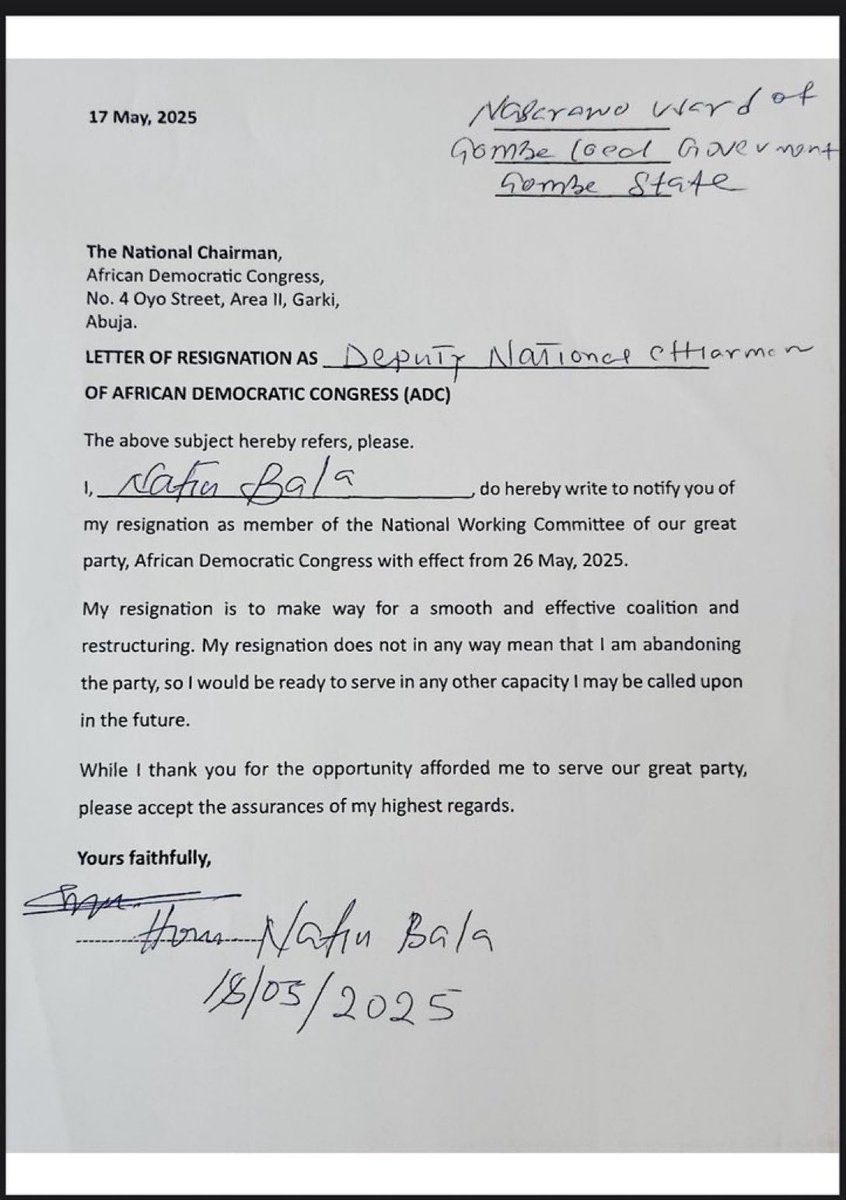 17 May, 2025
Nasarawo Ward of
Gombe local Goverment
Gombe State
The National Chairman,
African Democratic Congress,
No. 4 Oyo Street, Area II, Garki,
Abuja.
LETTER OF RESIGNATION AS Deputy National Chairman
OF AFRICAN DEMOCRATIC CONGRESS (ADC)
The above subject hereby refers, please.
I, Nafiu Bala, do hereby write to notify you of
my resignation as member of the National Working Committee of our great
party, African Democratic Congress with effect from 26 May, 2025.
My resignation is to make way for a smooth and effective coalition and
restructuring. My resignation does not in any way mean that I am abandoning
the party, so I would be ready to serve in any other capacity I may be called upon
in the future.
While I thank you for the opportunity afforded me to serve our great party,
please accept the assurances of my highest regards.
Yours faithfully,
Hon Nafiu Bala
18/05/2025